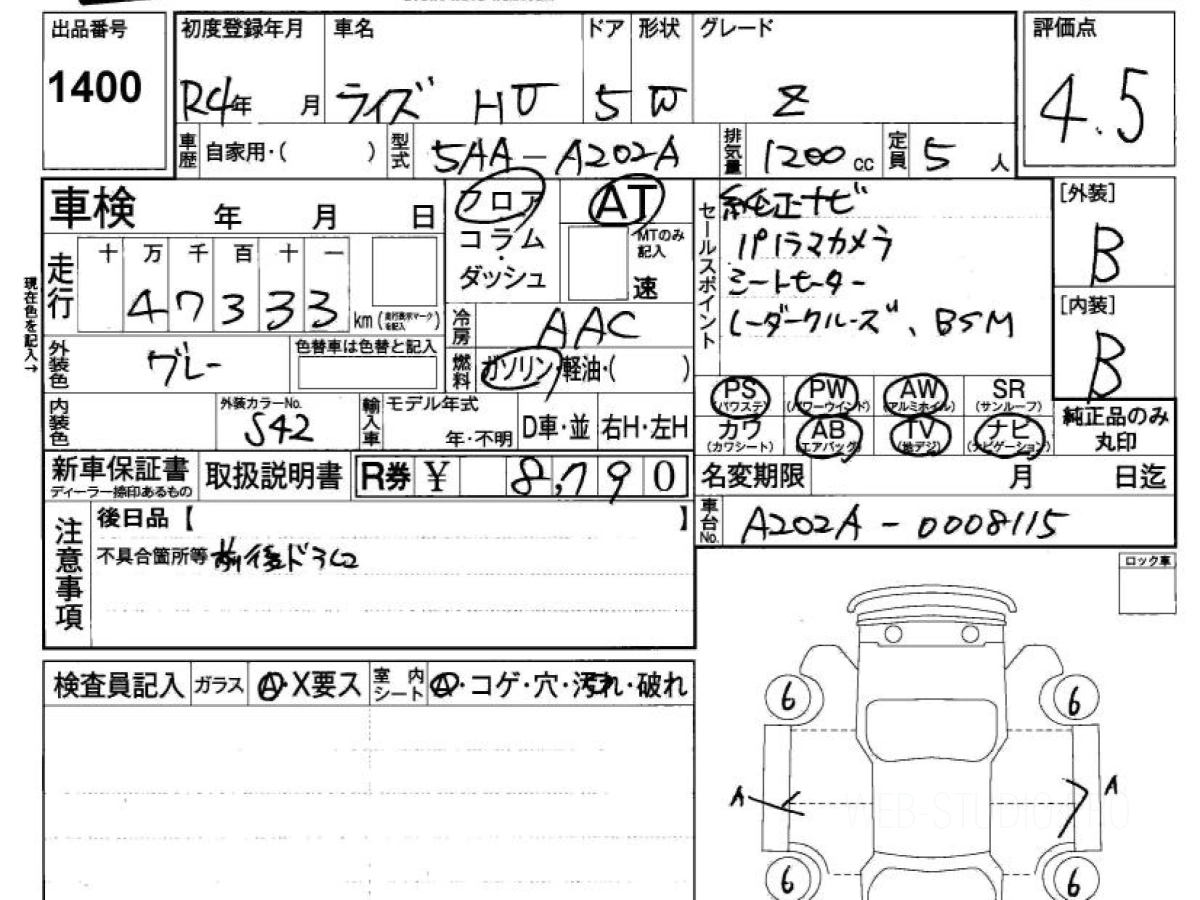 出品番号 初度登録年月 車名 ドア 形状 グレード 評価点
1400 R4年 月 ライズ HU 5 W Z 4.5
車歴 自家用・( ) 型式 5AA-A202A 排気量 1200 cc 定員 5 人
車検 年 月 日 フロア AT セールスポイント 純正ナビ [外装]
コラム・ダッシュ MTのみ記入 速 パノラマカメラ B
走行 十 万 千 百 十 一 シートヒーター [内装]
47333 km(走行表示マークを記入) 冷房 AAC レーダークルーズ、BSM B
現在色を記入→
外装色 グレー 色替車は色替と記入 燃料 ガソリン・軽油・( )
PS(パワステ) PW(パワーウインド) AW(アルミホイル) SR(サンルーフ) 純正品のみ丸印
内装色 外装カラーNo. S42 輸入車 モデル年式 年・不明 D車・並 右H・左H
カワ(カワシート) AB(エアバッグ) TV(地デジ) ナビ(ナビゲーション)
新車保証書 ディーラー捺印あるもの 取扱説明書 R券 ¥ 8,790 名変期限 月 日迄
注意事項 後日品【 】 車台No. A202A-0008115
不具合箇所等 前後ドラレコ
ロック車
検査員記入 ガラス A・X要ス 室内シート A・コゲ・穴・汚れ・破れ
6 6
A A
WEB-STUDIO.PRO
6 6